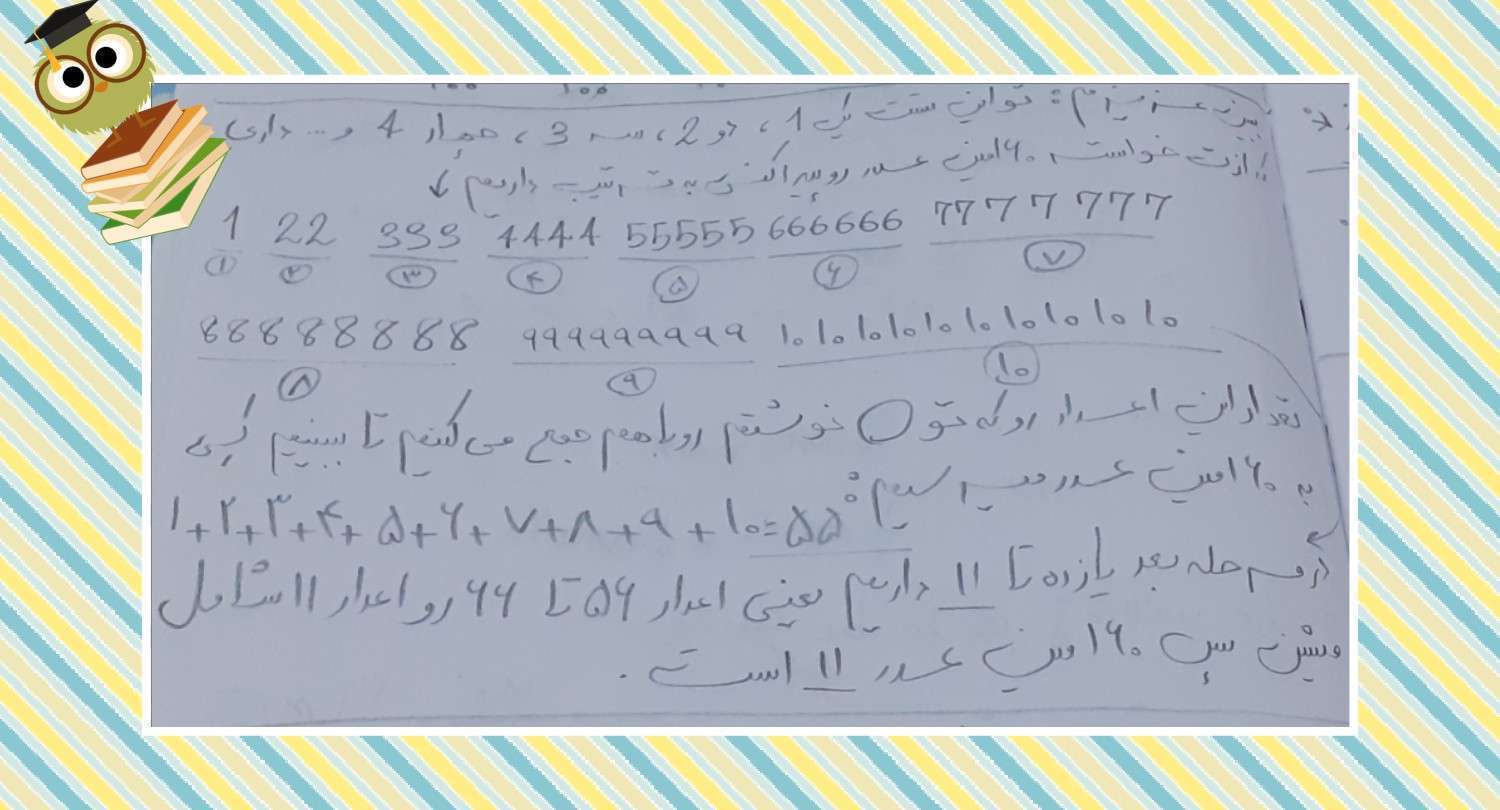 ببین عزیزم: تو این ست یک 1، دو 2، سه 3، چهار 4 و... داری
ازت خواسته ۶۰امین عدد رو پیدا کنی به ترتیب داریم ↓
1 22 333 4444 55555 666666 7777777
۱ ۲ ۳ ۴ ۵ ۶ ۷
88888888 999999999 10 10 10 10 10 10 10 10 10 10
۸ ۹ ۱۰
تعداد این اعداد رو که تو ○ نوشتم رو با هم جمع می کنیم تا ببینیم کی
به ۶۰امین عدد میرسیم:
۱+۲+۳+۴+۵+۶+۷+۸+۹+۱۰=۵۵
در مرحله بعد یازده تا ۱۱ داریم یعنی اعداد ۵۶ تا ۶۶ رو اعداد ۱۱ شامل
میشن پس ۶۰امین عدد ۱۱ است.